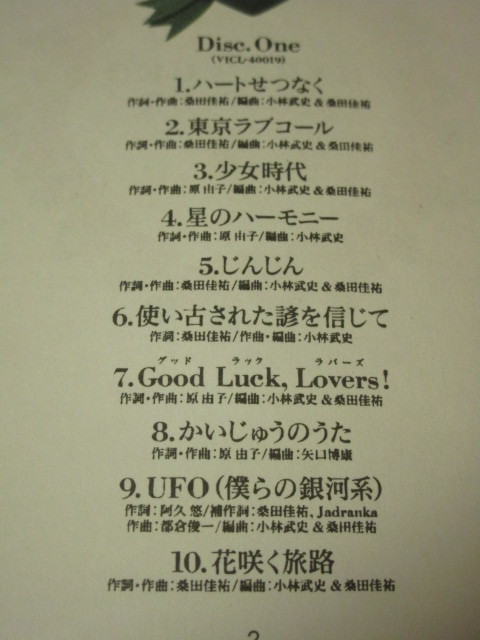 Disc. One
(VICL-40019)
1.ハートせつなく
作詞・作曲：桑田佳祐/編曲：小林武史＆桑田佳祐
2.東京ラブコール
作詞・作曲：桑田佳祐/編曲：小林武史＆桑田佳祐
3.少女時代
作詞・作曲：原 由子/編曲：小林武史＆桑田佳祐
4.星のハーモニー
作詞・作曲：原 由子/編曲：小林武史
5.じんじん
作詞・作曲：桑田佳祐/編曲：小林武史＆桑田佳祐
6.使い古された諺を信じて
作詞：桑田佳祐/作曲・編曲：小林武史
グッド ラック ラバーズ
7.Good Luck, Lovers!
作詞・作曲：原 由子/編曲：小林武史＆桑田佳祐
8.かいじゅうのうた
作詞・作曲：原 由子/編曲：矢口博康
9.UFO（僕らの銀河系）
作詞：阿久 悠/補作詞：桑田佳祐, Jadranka
作曲：都倉俊一/編曲：小林武史＆桑田佳祐
10.花咲く旅路
作詞・作曲：桑田佳祐/編曲：小林武史＆桑田佳祐
2